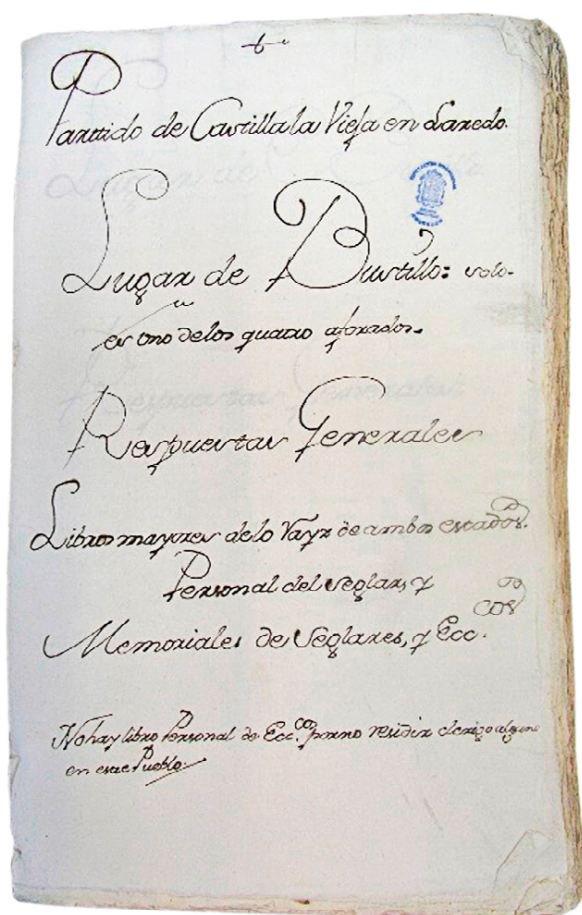 Parttido de Castilla la Vieja en Laredo.
Lugar de Bustillo: solo
es uno de los quatro aforados.
Respuestas Generales
Libros mayores de lo Rayz de ambos estados.
Personal del seglar, y
Memoriales de Seglares, y Ecc.cos
No hay libro Personal de Ecc.co por no residir clerigo alguno
en este Pueblo.